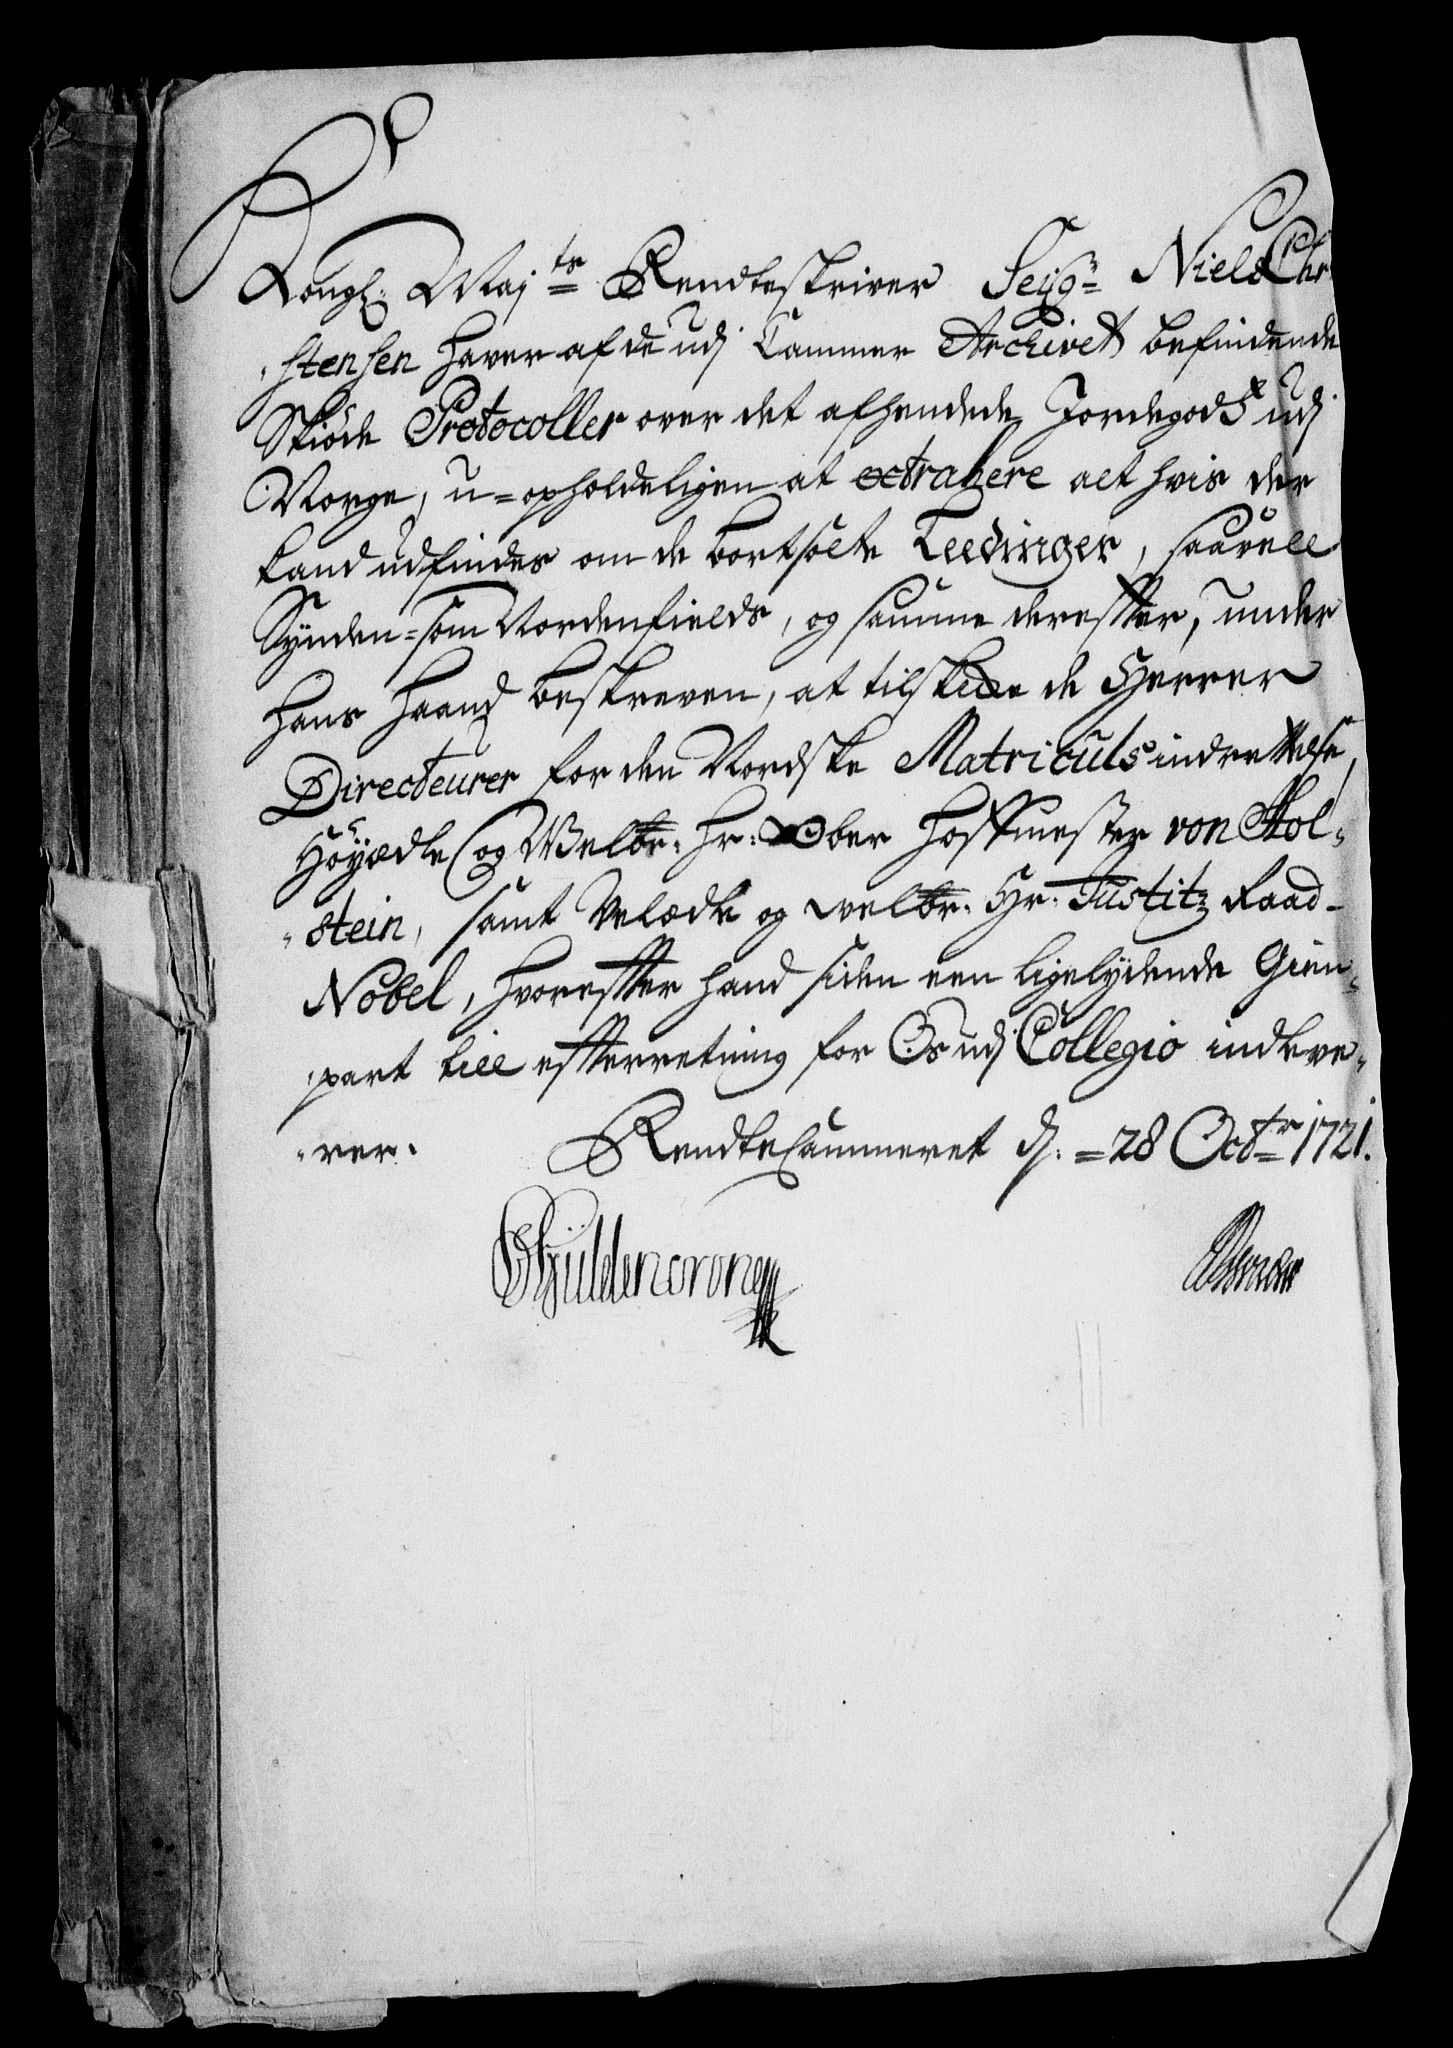 Kongl: Maj:ts Rendteskriver Seigr Niels Chri
stensen haver af de udj Cammer Archivet befindende
Skiöde Protocoller over det afhendede Jordegods udj
Norge, u-opholdeligen at extrahere alt hvis der
kand udfindes om de bortsolte Leedinger, saavell
Synden- som Nordenfields, og samme derefter, under
hans haand beskreven, at tilstille de Herrer
Directeurer for den Nordske Matriculs indrettelse,
Höyædle og Welbr. Hr: Ober Hoffmester von Hol-
stein, samt Velædle og velbr. Hr: Justitz Raad
Nobel, hvorefter hand siden een ligelydende Gien-
part till efterretning for Os udj Collegio indleve-
rer. RendteCammeret dj. 28 Octr 1721.
Güldencrone